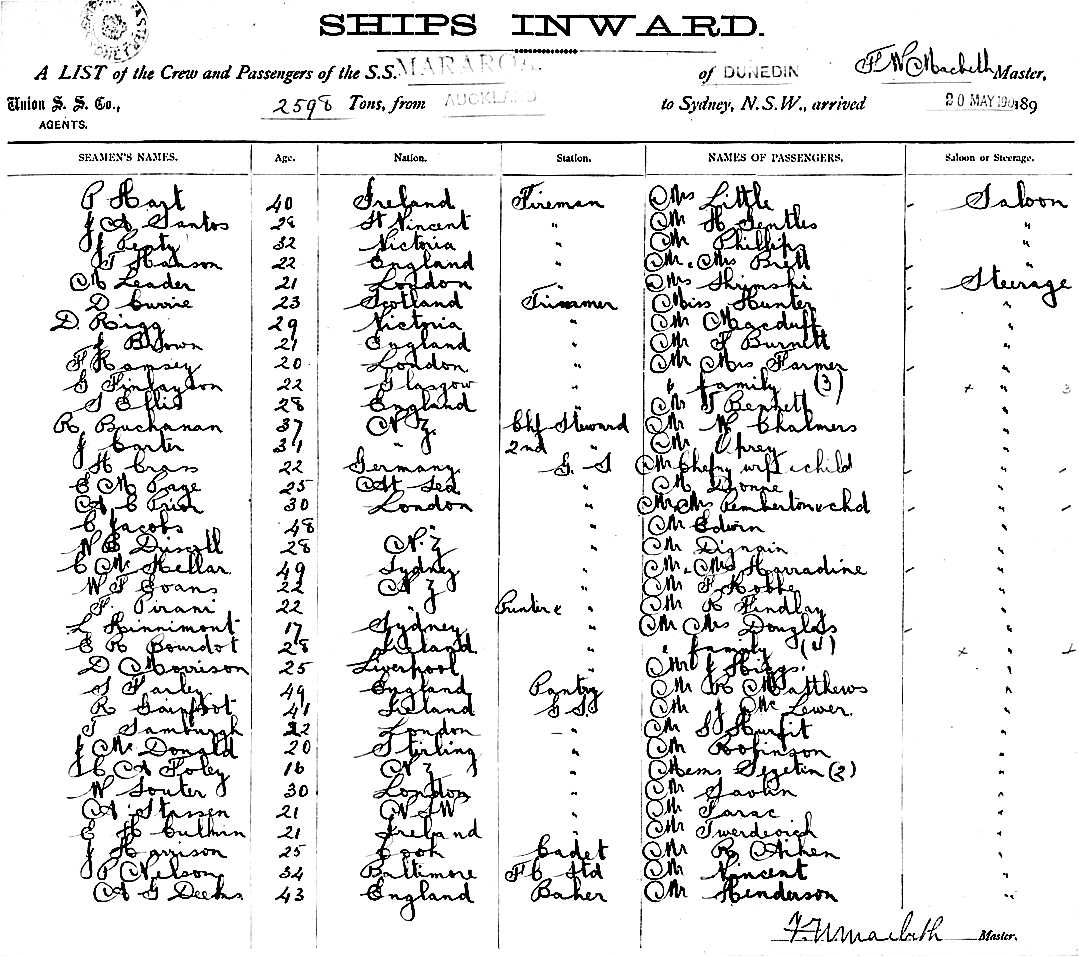 SHIPS INWARD.
A LIST of the Crew and Passengers of the S.S. MARAROA. of DUNEDIN F W Macbeth Master,
Union S. S. Co., AGENTS. 2598 Tons, from AUCKLAND to Sydney, N.S.W., arrived 20 MAY 189
SEAMEN'S NAMES. Age. Nation. Station. NAMES OF PASSENGERS. Saloon or Steerage.
P Hart 40 Ireland Fireman Mrs Little Saloon
J A Santos 28 St Vincent " Mr H Gentles "
J 32 Victoria " Mr Phillips "
T Hanson 22 England " Mr & Mrs Brett "
M Leader 21 London " Mrs Shimski Steerage
D Currie 23 Scotland Trimmer Miss Hunter "
D. Rigg 29 Victoria " Mr Macduff "
J Brown 21 England " Mr J Burnett "
F Ramsey 20 London " Mr Mrs Farmer "
G Finlayson 22 Glasgow " " family (3) "
S Ellis 28 England " Mr T Bennett "
R. Buchanan 37 N Z Chf Steward Mr W Chalmers "
J Carter 31 " 2nd " Mr Uprey "
H Crass 22 Germany G. S Mr wife & child "
E M Page 25 At Sea " M Dionne "
A C Prior 30 London " Mr & Mrs Pemberton & chd "
C Jacobs 48 " " Mr Edwin "
N E Driscoll 28 N. Z " Mr Dignain "
C Mc Kellar 49 Sydney " Mr & Mrs Harradine "
W T Evans 22 N Z " Mr F "
F. Pirani 22 " " Mr R Findlay "
L Kinnimont 17 Sydney " Mr Mrs Douglas "
E R Bourdot 28 Ireland " " family (4) "
D Morrison 25 Liverpool " Mr J Higgs "
S Farley 49 England Pantry Mr R Matthews "
R Gainfoot 41 Ireland G.S. Mr J Mc Lewer "
T Samburgh 22 London " Mr "
J Mc Donald 20 Stirling " Mr Robinson "
J C A Foley 16 N Z " Mems Segetin (2) "
W Souter 30 London " Mr "
A Stassen 21 N S W " Mr Tarac "
E H Cuthin 21 Ireland " Mr "
J Harrison 25 Cook Cadet Mr R Aiken "
P Nelson 34 Baltimore F C Std Mr Vincent "
A G Deeks 43 England Baker Mr Henderson "
F. W Macbeth Master.